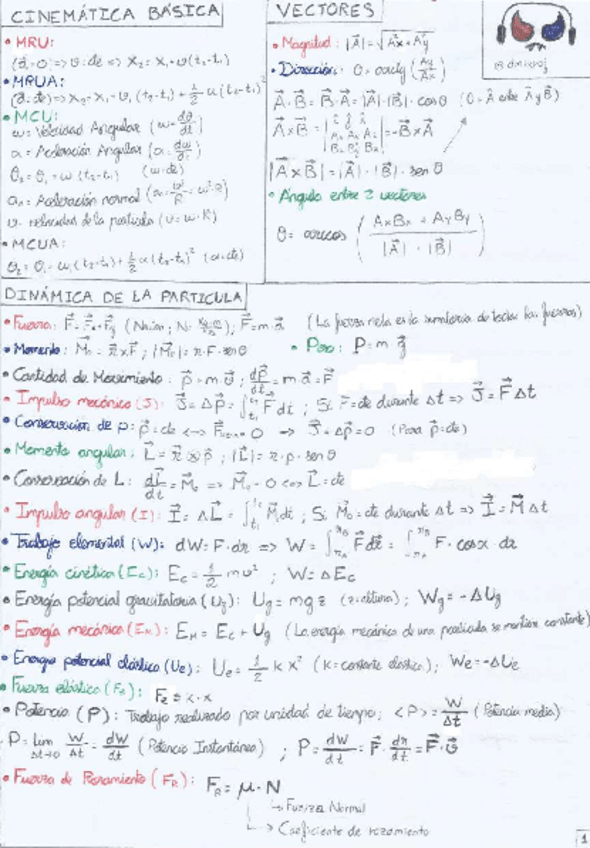 CINEMÁTICA BÁSICA
• MRU:
(a⃗=0) => v=cte => x₂=x₁+v(t₂-t₁)
• MRUA:
(a⃗=cte) => x₂=x₁+v₁(t₂-t₁)+½a(t₂-t₁)²
• MCU:
ω = Velocidad Angular (ω=dθ/dt)
α = Aceleración Angular (α=dω/dt)
θ₂=θ₁+ω(t₂-t₁) (ω=cte)
aₙ = Aceleración normal (aₙ=v²/R=ω²·R)
v = velocidad de la partícula (v=ω·R)
• MCUA:
θ₂=θ₁+ω₁(t₂-t₁)+½α(t₂-t₁)² (α=cte)
VECTORES
• Magnitud: |A⃗|=√(A²x+A²y)
• Dirección: θ=arctg(Ay/Ax)
A⃗·B⃗=B⃗·A⃗=|A⃗|·|B⃗|·cosθ
A⃗xB⃗= | i j k / Ax Ay Az / Bx By Bz | =-B⃗xA⃗
|A⃗xB⃗|=|A⃗|·|B⃗|·senθ
• Ángulo entre 2 vectores
θ=arccos((AxBx+AyBy)/(|A⃗|·|B⃗|))
DINÁMICA DE LA PARTICULA
• Fuerza: F=m·a⃗ (La fuerza neta es la sumatoria de todas las fuerzas)
• Momento: M⃗₀=r⃗xF⃗; |M⃗₀|=r·F·senθ • Peso: P=m·g⃗
• Cantidad de Movimiento: p⃗=m·v⃗; dp⃗/dt=m·a⃗=F⃗
• Impulso mecánico (J): J⃗=Δp⃗=∫F⃗dt; Si F=cte durante Δt => J⃗=F⃗Δt
• Conservación de p: p⃗=cte <=> F=0 => J⃗=Δp⃗=0 (Para p⃗=cte)
• Momento angular: L⃗=r⃗xp⃗; |L⃗|=r·p·senθ
• Conservación de L: dL⃗/dt=M⃗₀ => M⃗₀=0 <=> L⃗=cte
• Impulso angular (I): I⃗=ΔL⃗=∫M⃗dt; Si M⃗₀=cte durante Δt => I⃗=M⃗Δt
• Trabajo elemental (W): dW=F·dr => W=∫F⃗dr⃗=∫F·cosα·dr
• Energía cinética (Ec): Ec=½mv²; W=ΔEc
• Energía potencial gravitatoria (Ug): Ug=mgz (z=altura); Wg=-ΔUg
• Energía mecánica (Em): EM=Ec+Ug (La energía mecánica de una partícula se mantiene constante)
• Energía potencial elástica (Ue): Ue=½kx² (K=constante elástica); We=-ΔUe
• Fuerza elástica (Fe): Fe=k·x
• Potencia (P): Trabajo realizado por unidad de tiempo; <P>=W/Δt (Potencia media)
P=lim Δt→0 W/Δt=dW/dt (Potencia Instantánea); P=dW/dt=F⃗·dr/dt=F⃗·v⃗
• Fuerza de Rozamiento (FR): FR=μ·N
↳ Fuerza Normal
↳ Coeficiente de rozamiento
1